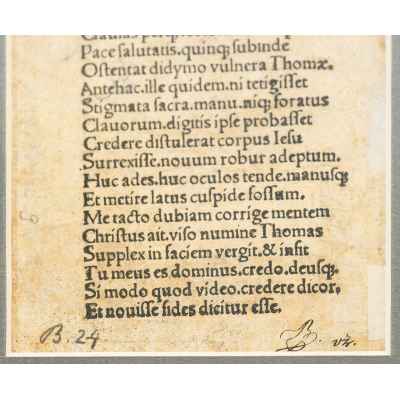 Pace salutatis. quinqꝫ subinde
Ostentat didymo vulnera Thomæ.
Antehac. ille quidem. ni tetigisset
Stigmata sacra. manu. niqꝫ foratus
Clauorum. digitis ipse probasset
Credere distulerat corpus Iesu
Surrexisse. nouum robur adeptum.
Huc ades. huc oculos tende. manusqꝫ
Et metire latus cuspide fossum.
Me tacto dubiam corrige mentem
Christus ait. viso numine Thomas
Supplex in faciem vergit. & infit
Tu meus es dominus. credo. deusqꝫ.
Si modo quod video. credere dicor.
Et nouisse fides dicitur esse.
B. 24
B.